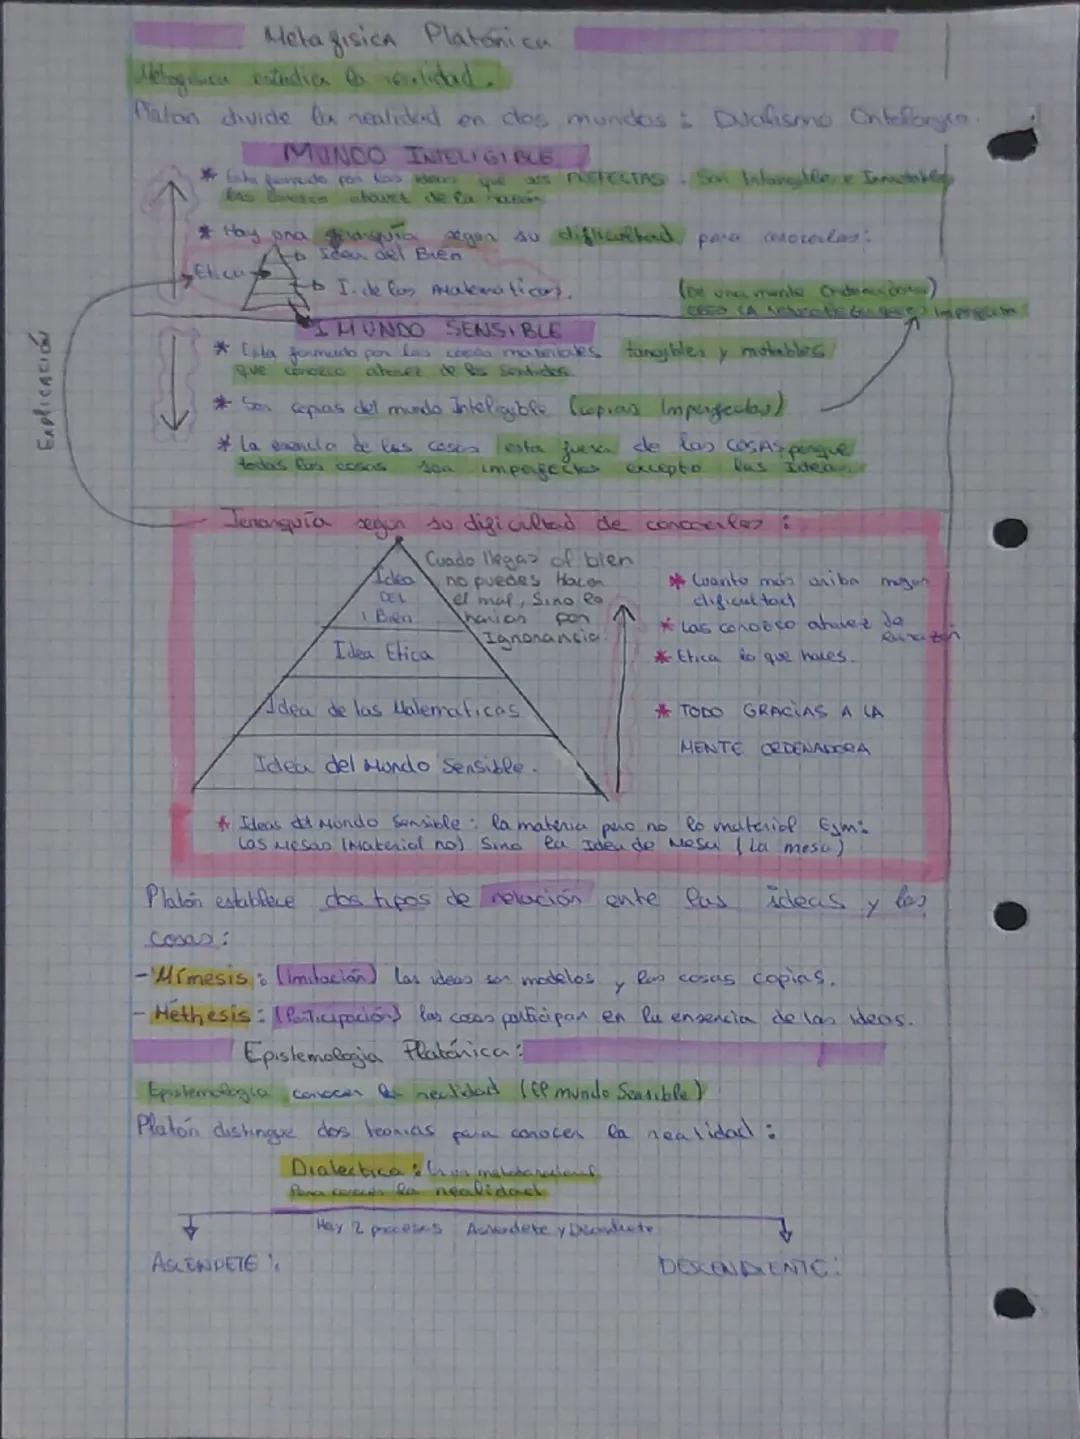 Metafisica Platónica
Metafisica estudia la realidad.
Platon divide la realidad en dos mundos: Dualismo Ontologico.
MUNDO INTELIGIBLE
* Esta formado por las ideas que son PERFECTAS. Son Intangibles e Inmutables
las conozco atravez de la razón
* Hay una jerarquía segun su dificultad para conocerlas:
Idea del Bien
Etica
I. de las Matematicas.
(De una mente Ordenadora)
imperfecta
MUNDO SENSIBLE
* Esta formado por las cosas materiales tangibles y mutables
que conozco atravez de los Sentidos.
* Son copias del mundo Inteligible (copias Imperfectas)
* La esencia de las cosas esta fuera de las COSAS porque
todas las cosas son imperfectas excepto las Ideas.
Explicación
Jerarquía segun su dificultad de conocerlas:
Idea
DEL
Bien
Cuado llegas al bien
no puedes Hacer
el mal, Sino lo
harias por
Ignorancia.
Idea Etica
Idea de las Matematicas
Idea del Mundo Sensible.
* Cuanto más arriba mayor
dificultad
* Las conozco atravez de
la razón
* Etica lo que haces.
* TODO GRACIAS A LA
MENTE ORDENADORA
* Ideas del Mundo Sensible: la materia pero no lo material Ejm:
Las Mesas (Material no) Sino la Idea de Mesa (La mesa)
Platón establece dos tipos de relación ente las ideas y las
cosas:
- Mímesis: (Imitación) las ideas son modelos y las cosas copias.
- Méthesis: (Participación) las cosas participan en la ensencia de las ideas.
Epistemologia Platónica:
Epistemologia conocer la realidad (El mundo Sensible)
Platón distingue dos teorias para conocer la realidad:
Dialectica: Es un metodo racional
Para conocer la realidad
Hay 2 procesos Asendete y Descendiente
ASCENDETE:
DESCENDIENTE: